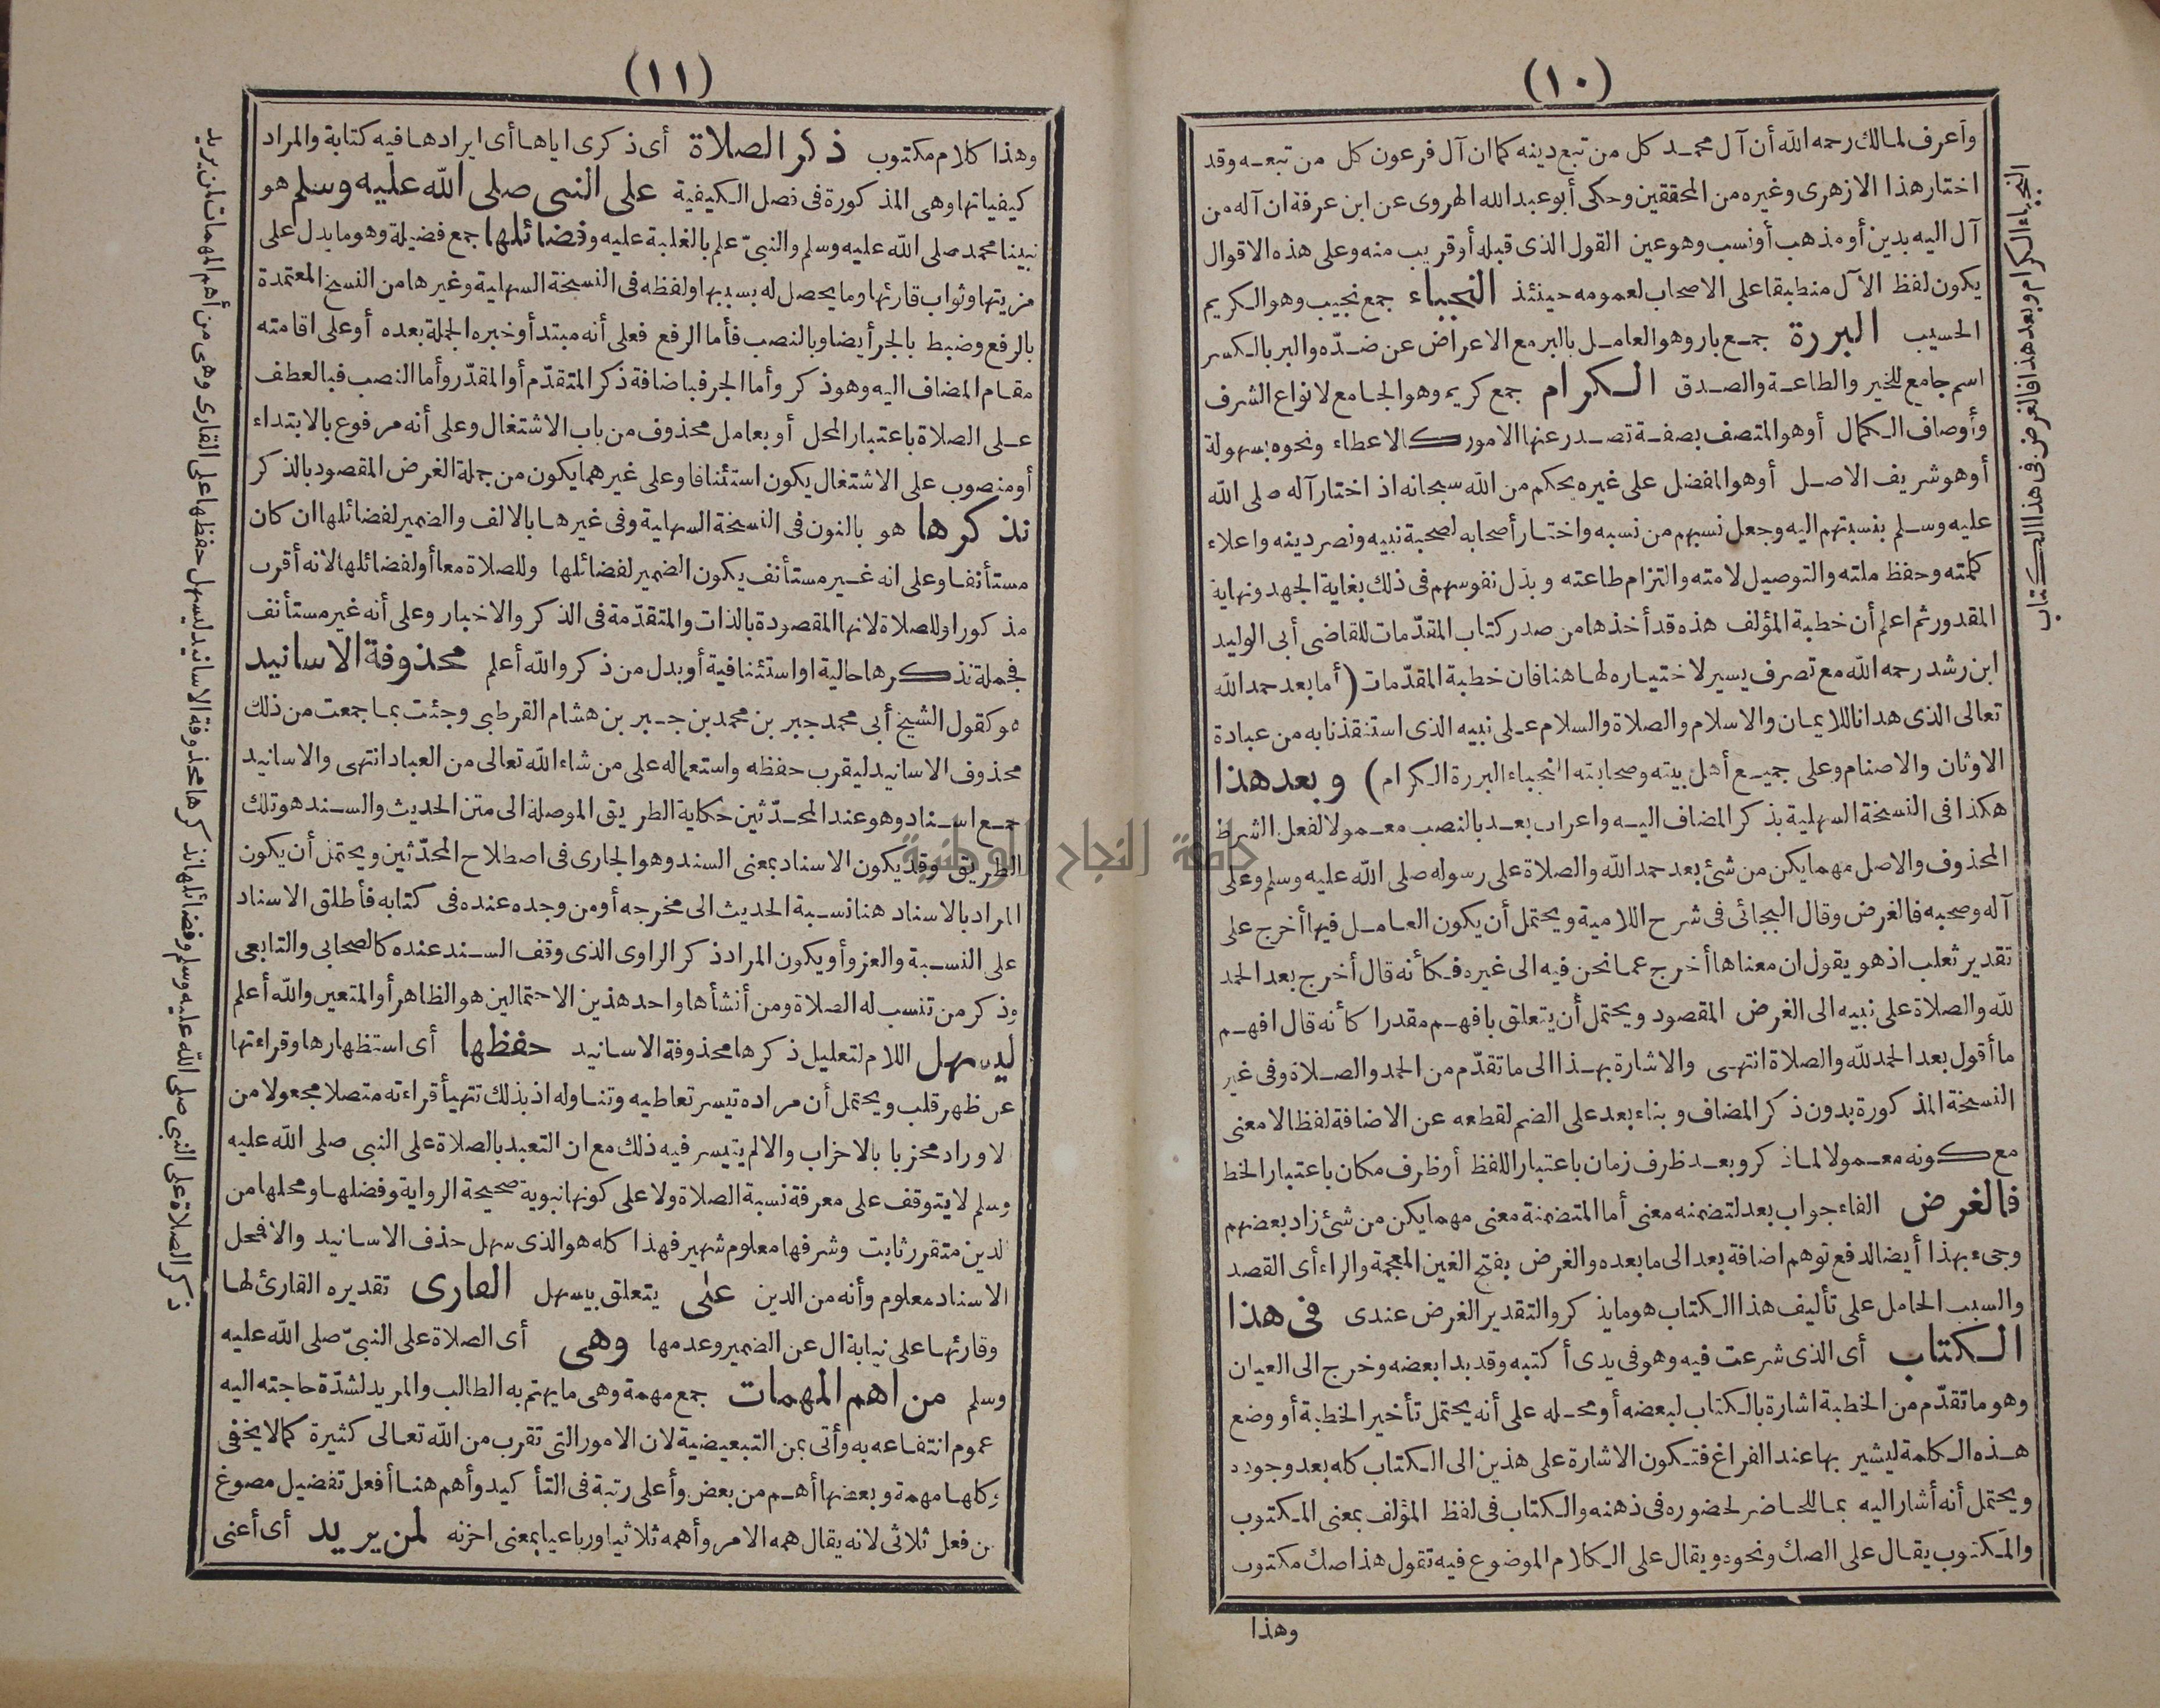 (١٠)
وأعرف لمالك رحمه الله أن آل محمد كل من تبع دينه كما ان آل فرعون كل من تبعه وقد
اختار هذا الازهرى وغيره من المحققين وحكى أبو عبد الله الهروى عن ابن عرفة ان آله من
آل اليه بدين أو مذهب أو نسب وهو عين القول الذى قبله أو قريب منه وعلى هذه الاقوال
يكون لفظ الآل منطبقا على الاصحاب لعمومه حينئذ النجباء جمع نجيب وهو الكريم
الحسيب البررة جمع بار وهو العامل بالبر مع الاعراض عن ضده والبر بالكسر
اسم جامع للخير والطاعة والصدق الكرام جمع كريم وهو الجامع لانواع الشرف
وأوصاف الكمال أو هو المتصف بصفة تصدر عنها الامور كالاعطاء ونحوه بسهولة
أو هو شريف الاصل أو هو المفضل على غيره بحكم من الله سبحانه اذ اختار آله صلى الله
عليه وسلم بنسبتهم اليه وجعل نسبهم من نسبه واختار أصحابه لصحبة نبيه ونصر دينه واعلاء
كلمته وحفظ ملته والتوصيل لامته والتزام طاعته وبذل نفوسهم فى ذلك بغاية الجهد ونهاية
المقدور ثم اعلم أن خطبة المؤلف هذه قد أخذها من صدر كتاب المقدّمات للقاضى أبى الوليد
ابن رشد رحمه الله مع تصرف يسير لاختياره لها هنا فان خطبة المقدّمات (أما بعد حمد الله
تعالى الذى هدانا للايمان والاسلام والصلاة والسلام على نبيه الذى استنقذنا به من عبادة
الاوثان والاصنام وعلى جميع أهل بيته وصحابته النجباء البررة الكرام) وبعد هذا
هكذا فى النسخة السهلية بذكر المضاف اليه واعراب بعد بالنصب معمولا لفعل الشرط
المحذوف والاصل مهما يكن من شئ بعد حمد الله والصلاة على رسوله صلى الله عليه وسلم وعلى
آله وصحبه فالغرض وقال البجائى فى شرح اللامية ويحتمل أن يكون العامل فيها أخرج على
تقدير ثعلب اذ هو يقول ان معناها أخرج عما نحن فيه الى غيره فكأنه قال أخرج بعد الحمد
لله والصلاة على نبيه الى الغرض المقصود ويحتمل أن يتعلق بافهم مقدرا كأنه قال افهم
ما أقول بعد الحمد لله والصلاة انتهى والاشارة بهذا الى ما تقدّم من الحمد والصلاة وفى غير
النسخة المذكورة بدون ذكر المضاف وبناء بعد على الضم لقطعه عن الاضافة لفظا لا معنى
مع كونه معمولا لما ذكر وبعد ظرف زمان باعتبار اللفظ أو ظرف مكان باعتبار الخط
فالغرض الفاء جواب بعد لتضمنه معنى أما المتضمنة معنى مهما يكن من شئ زاد بعضهم
وجىء بهذا أيضا لدفع توهم اضافة بعد الى ما بعده والغرض بفتح الغين المعجمة والراء أى القصد
والسبب الحامل على تأليف هذا الكتاب هو ما يذكر والتقدير الغرض عندى فى هذا
الكتاب أى الذى شرعت فيه وهو فى يدى أكتبه وقد بدا بعضه وخرج الى العيان
وهو ما تقدّم من الخطبة اشارة بالكتاب لبعضه أو محله على أنه يحتمل تأخير الخطبة أو وضع
هذه الكلمة ليشير بها عند الفراغ فتكون الاشارة على هذين الى الكتاب كله بعد وجوده
ويحتمل أنه أشار اليه بما للحاضر لحضوره فى ذهنه والكتاب فى لفظ المؤلف بمعنى المكتوب
والمكتوب يقال على الصك ونحوه ويقال على الكلام الموضوع فيه تقول هذا صك مكتوب
وهذا
النجباء الكرام وبعد هذا فالغرض فى هذا الكتاب
(١١)
وهذا كلام مكتوب ذكر الصلاة أى ذكرى اياها أى ايرادها فيه كتابة والمراد
كيفياتها وهى المذكورة فى فصل الكيفية على النبى صلى الله عليه وسلم هو
نبينا محمد صلى الله عليه وسلم والنبىّ علم بالغلبة عليه وفضائلها جمع فضيلة وهو ما يدل على
مزيتها وثواب قارئها وما يحصل له بسببها ولفظه فى النسخة السهلية وغيرها من النسخ المعتمدة
بالرفع وضبط بالجر أيضا وبالنصب فأما الرفع فعلى أنه مبتدأ وخبره الجملة بعده أو على اقامته
مقام المضاف اليه وهو ذكر وأما الجر فباضافة ذكر المتقدّم أو المقدّر وأما النصب فبالعطف
على الصلاة باعتبار المحل أو بعامل محذوف من باب الاشتغال وعلى أنه مرفوع بالابتداء
أو منصوب على الاشتغال يكون استئنافا وعلى غيرهما يكون من جملة الغرض المقصود بالذكر
نذكرها هو بالنون فى النسخة السهلية وفى غيرها بالالف والضمير لفضائلها ان كان
مستأنفا وعلى انه غير مستأنف يكون الضمير لفضائلها وللصلاة معا أو لفضائلها لانه أقرب
مذكور أو للصلاة لانها المقصودة بالذات والمتقدّمة فى الذكر والاخبار وعلى أنه غير مستأنف
فجملة نذكرها حالية أو استئنافية أو بدل من ذكر والله أعلم محذوفة الاسانيد
هو كقول الشيخ أبى محمد جبر بن محمد بن جبر بن هشام القرطبى وجئت بما جمعت من ذلك
محذوف الاسانيد ليقرب حفظه واستعماله على من شاء الله تعالى من العباد انتهى والاسانيد
جمع اسناد وهو عند المحدّثين حكاية الطريق الموصلة الى متن الحديث والسند هو تلك
الطريق وقد يكون الاسناد بمعنى السند وهو الجارى فى اصطلاح المحدّثين ويحتمل أن يكون
المراد بالاسناد هنا نسبة الحديث الى مخرجه أو من وجده عنده فى كتابه فأطلق الاسناد
على النسبة والعزو أو يكون المراد ذكر الراوى الذى وقف السند عنده كالصحابى والتابعى
وذكر من تنسب له الصلاة ومن أنشأها واحد هذين الاحتمالين هو الظاهر أو المتعين والله أعلم
ليسهل اللام لتعليل ذكرها محذوفة الاسانيد حفظها أى استظهارها وقراءتها
عن ظهر قلب ويحتمل أن مراده تيسر تعاطيه وتناوله اذ بذلك تتهيأ قراءته متصلا مجعولا من
لاوراد محزبا بالاحزاب والا لم يتيسر فيه ذلك مع ان التعبد بالصلاة على النبى صلى الله عليه
وسلم لا يتوقف على معرفة نسبة الصلاة ولا على كونها نبوية صحيحة الرواية وفضلها ومحلها من
الدين متقرر ثابت وشرفها معلوم شهير فهذا كله هو الذى سهل حذف الاسانيد والا فمحل
الاسناد معلوم وأنه من الدين على يتعلق بيسهل القارى تقديره القارئ لها
وقارئها على نيابة ال عن الضمير وعدمها وهى أى الصلاة على النبىّ صلى الله عليه
وسلم من اهم المهمات جمع مهمة وهى ما يهتم به الطالب والمريد لشدّة حاجته اليه
عموم انتفاعه به وأتى بمن التبعيضية لان الامور التى تقرب من الله تعالى كثيرة كما لا يخفى
وكلها مهمة وبعضها أهم من بعض وأعلى رتبة فى التأكيد وأهم هنا أفعل تفضيل مصوغ
من فعل ثلاثى لانه يقال همه الامر وأهمه ثلاثيا ورباعيا بمعنى احزنه لمن يريد أى أعنى
ذكر الصلاة على النبى صلى الله عليه وسلم وفضائلها نذكرها محذوفة الاسانيد ليسهل حفظها على القارى وهى من أهم المهمات لمن يريد
جامعة النجاح الوطنية